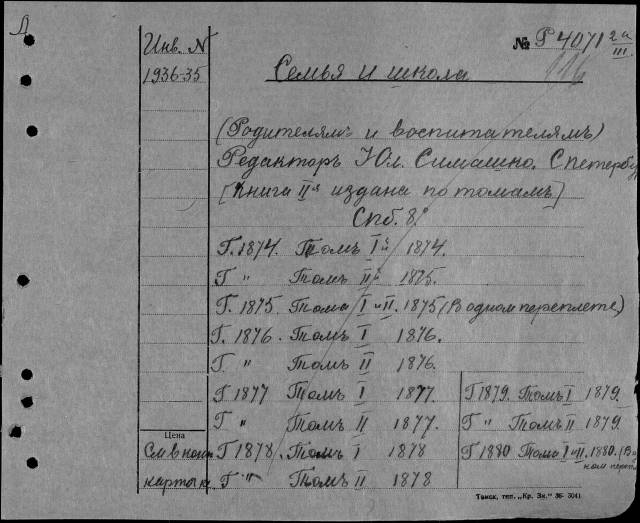 Инв. N
1936-35
№ Р 4071 2а III.
Семья и школа
(Родителямъ и воспитателямъ)
Редакторъ Юл. Симашко. С петербу
[Книга IIя издана по томамъ]
Спб. 8°.
Г. 1874. Томъ Iй 1874.
Г " Томъ IIй 1875.
Г. 1875. Тома I и II. 1875 (В одном переплете)
Г. 1876. Томъ I 1876.
Г. " Томъ II 1876.
Г 1877 Томъ I 1877.
Г " Томъ II 1877.
Г 1878. Томъ I 1878
Г " Томъ II 1878
Г 1879. Томъ I 1879.
Г " Томъ II 1879
Г 1880 Тома I и II. 1880. (В
ном переп
Цена
См в
карт
Томск, тип. „Кр. Зн." 36- 3041